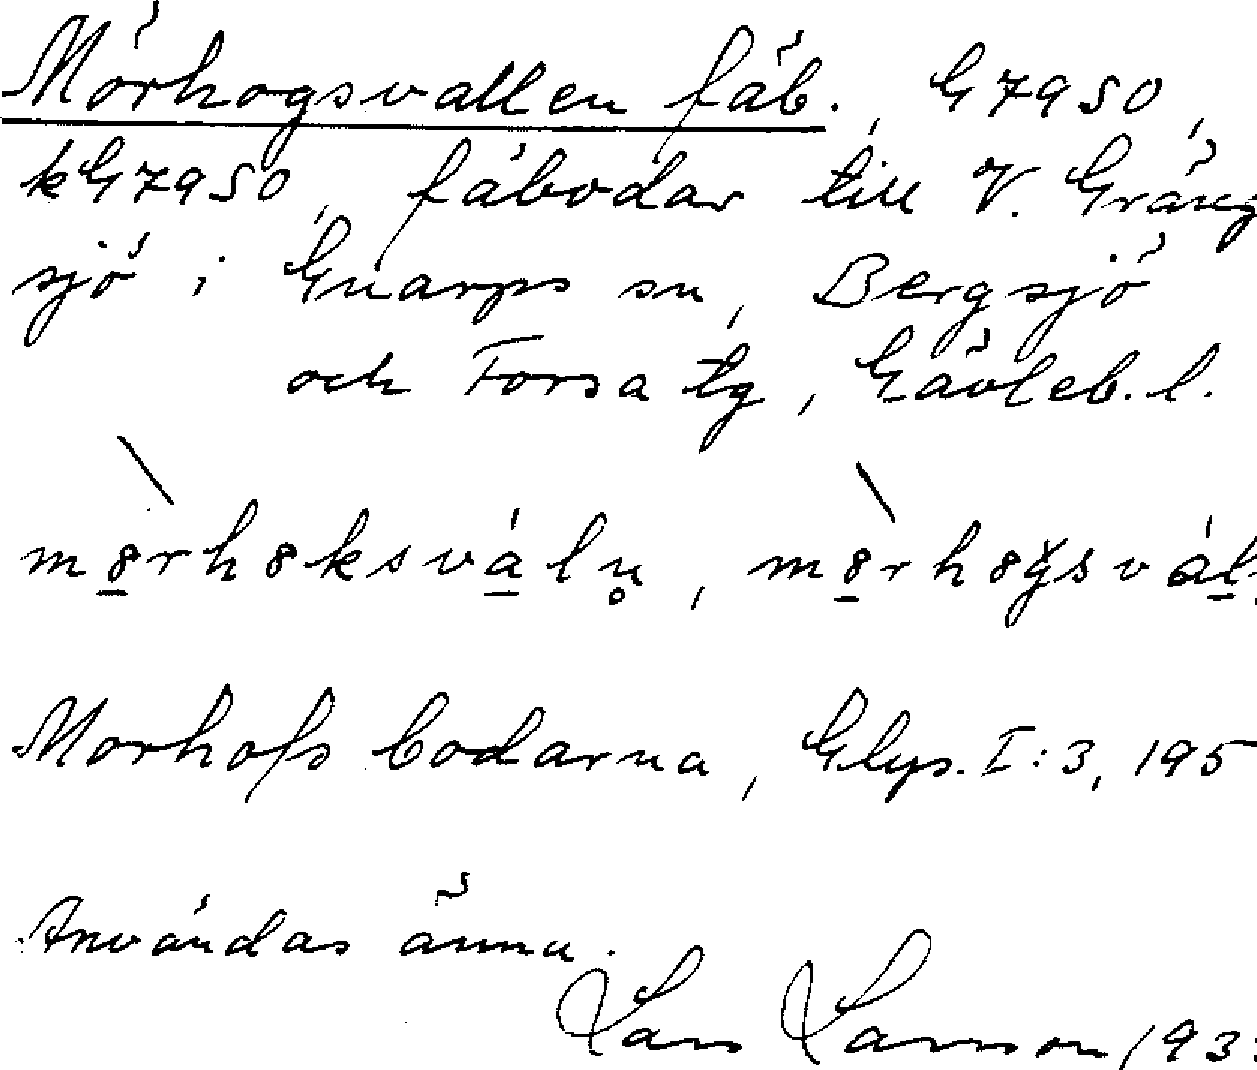 Mörhogsvallen fäb., G7950,
kG7950, fäbodar till V. Gräng
sjö i Gnarps sn, Bergsjö
och Forsa tg, Gävleb. l.
Morhofs bodarna, Glys. I:3, 195
Användas ännu.
Lars Larsson 193